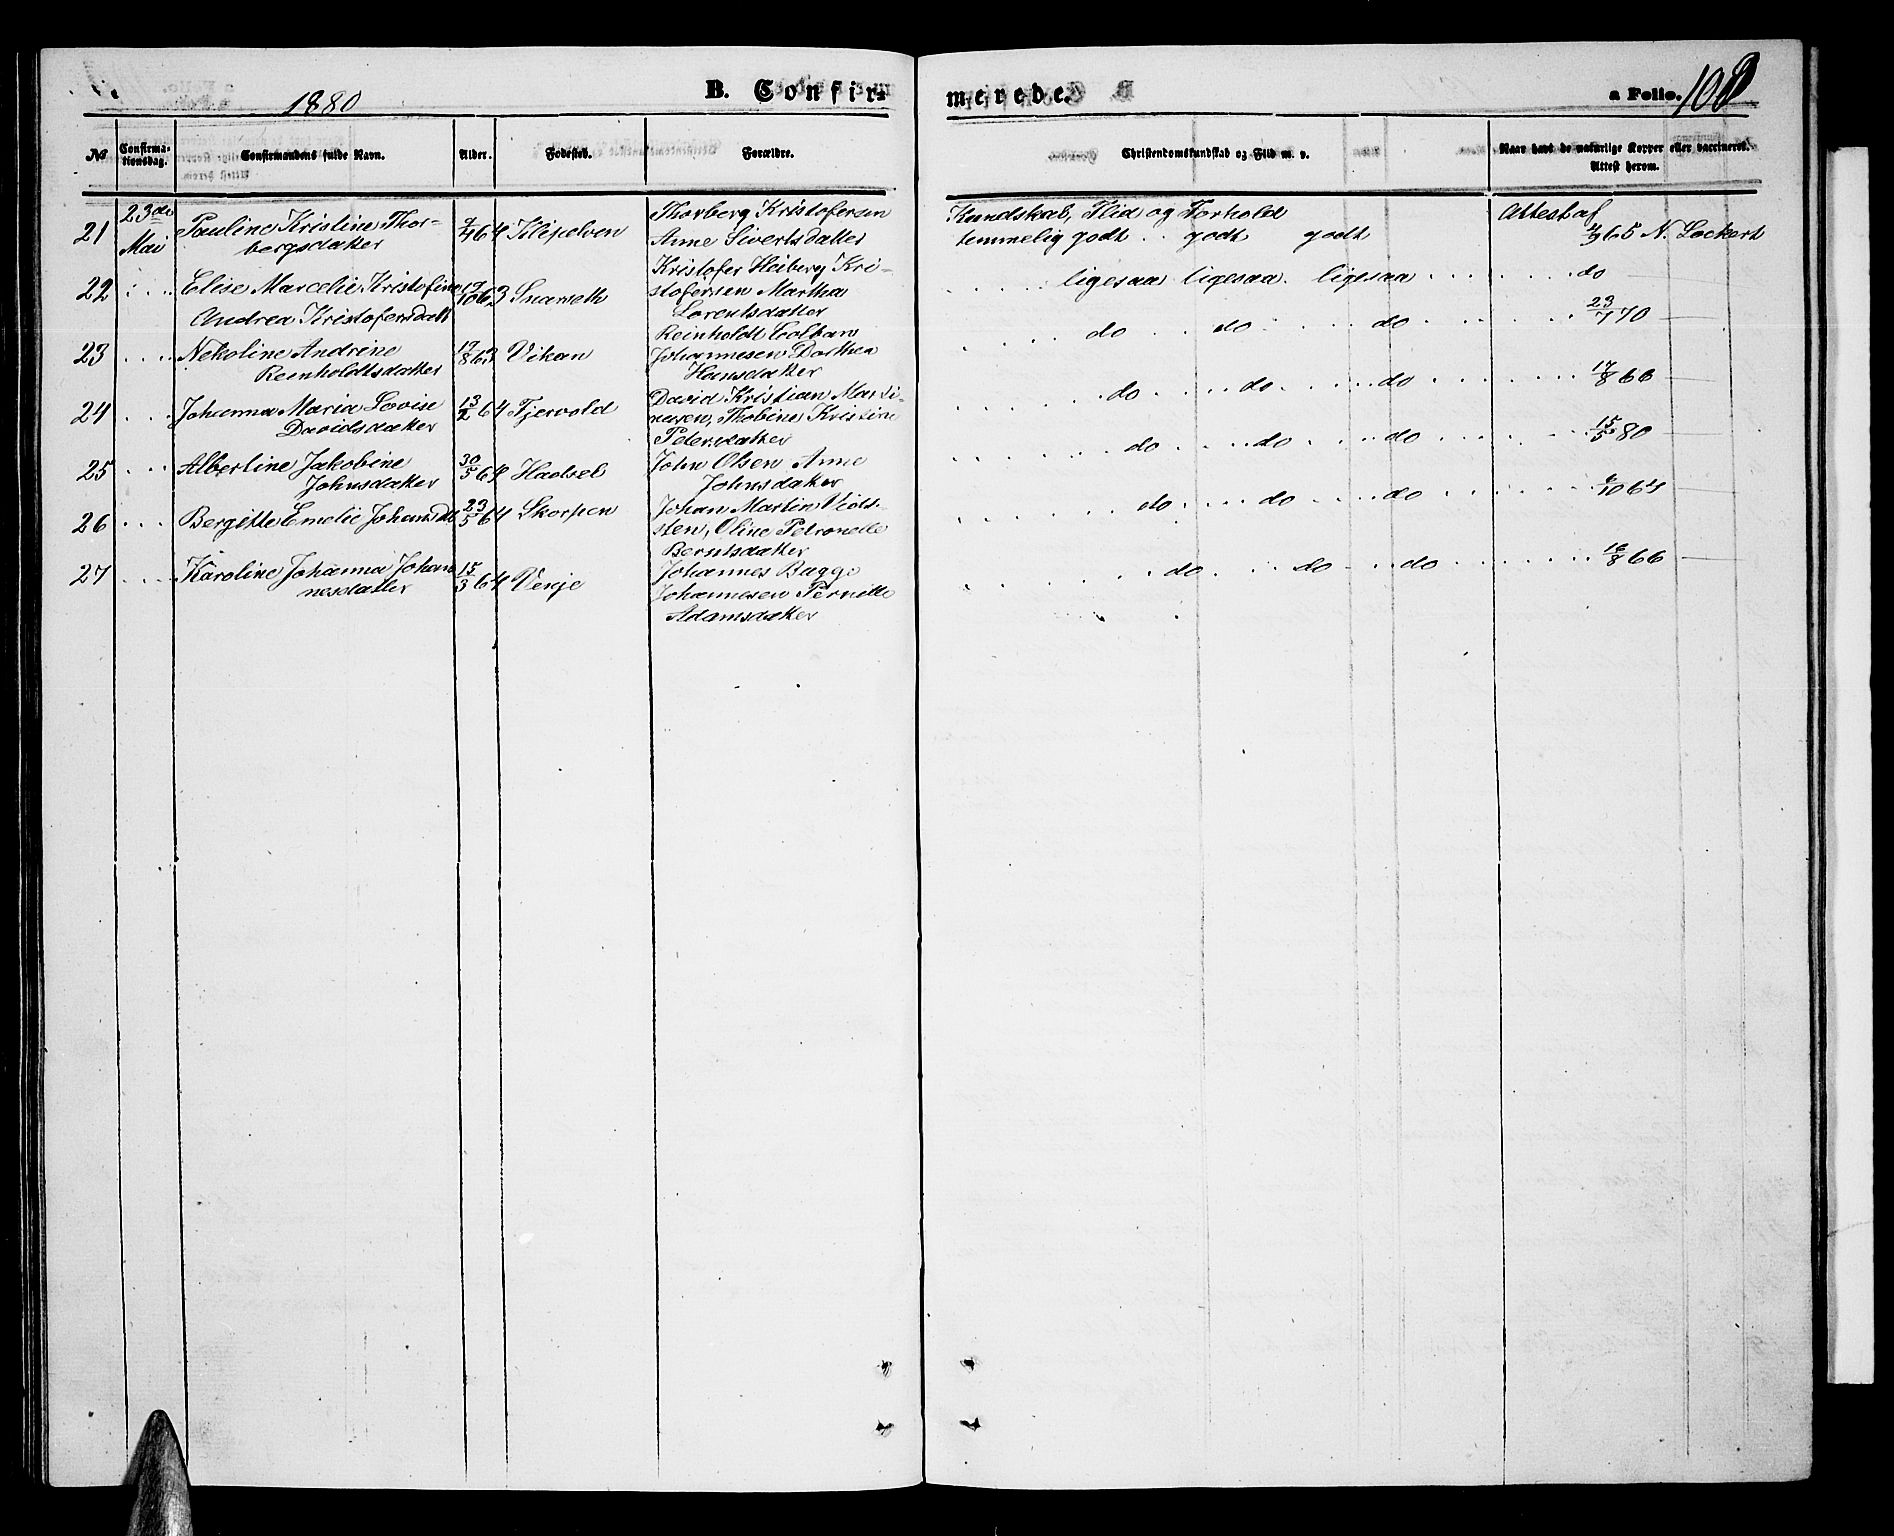 1880
B. Confir-
merede.
a Folio. 108
No
Confirma-
tionsdag.
Confirmandens fulde Navn.
Alder.
Fødested.
Forældre.
Christendomskundskab og Flid m. v.
Naar havt de naturlige Kopper eller vaccineret.
Attest herom.
21 23de Mai
Pauline Kristine Thor-
bergsdatter
64 Klipelven
Thorberg Kristofersen
Anne Sivertsdatter
Kundskab, Flid og Forhold
temmelig godt . . godt godt
Attest af
65 N. Lockert
22
Elise Marcelie Kristofine
Andrea Kristofersdatt
17/10 63 Snarseth
Kristofer Heiberg Kri-
stofersen Martha
Lorentsdatter
ligesaa ligesaa. ligesaa
do
23
Nekoline Andrine
Reinholdtsdatter
17/8 63 Vikan
Reinholdt Coltan
Johannesen Dorthea
Hansdatter
do do do
23/7 70
24
Johanna Maria Lovise
Davidsdatter
13/2 64 Fjervold
David Kristian Marti-
nusen, Thobine Kristine
Petersdatter
do do do
17/8 66
25
Albertine Jakobine
Johnsdatter
30/5 64 Hadsel
John Olsen Anne
Johnsdatter
do do do
15/5 80
26
Bergitte Emelie Johansdt
23/5 64 Skorpen
Johan Martin
sten, Oline Petronelle
Berntsdatter
do do do
27
Karoline Johanna Johan
nesdatter
15/3 64 Venje
Johannes Bugge
Johannesen Pernille
Adamsdatter
do do do
16/8 66